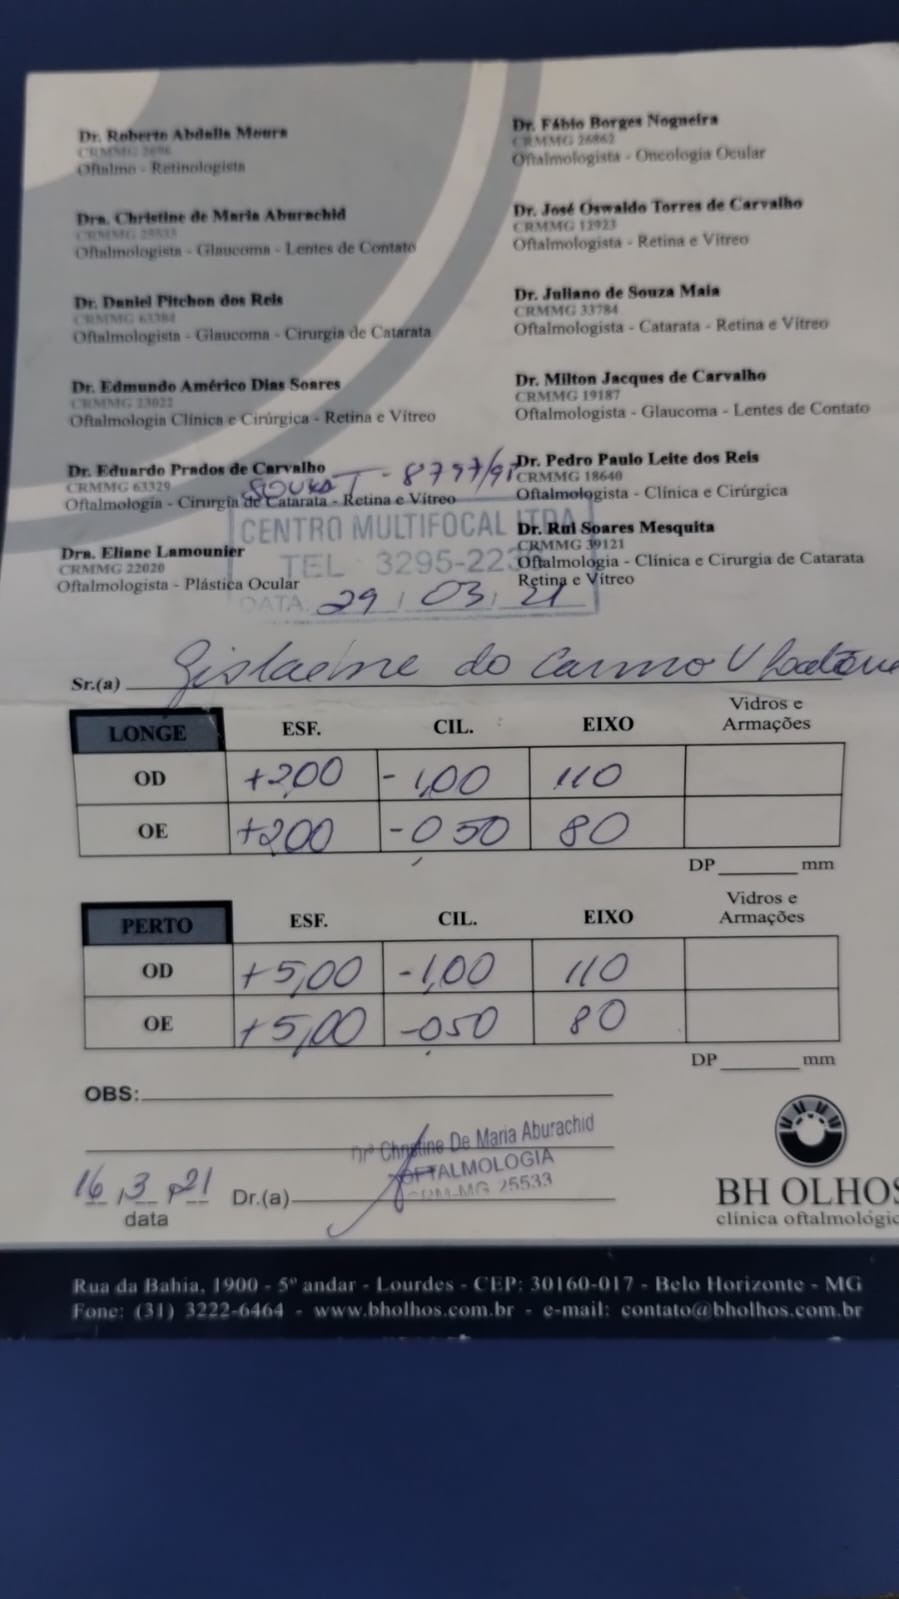 Dr. Roberto Abdalla Moura
CRMMG
Oftalmo - Retinologista
Dra. Christine de Maria Aburachid
CRMMG 25533
Oftalmologista - Glaucoma - Lentes de Contato
Dr. Daniel Pitchon dos Reis
CRMMG 63384
Oftalmologista - Glaucoma - Cirurgia de Catarata
Dr. Edmundo Américo Dias Soares
CRMMG 23022
Oftalmologia Clínica e Cirúrgica - Retina e Vítreo
Dr. Eduardo Prados de Carvalho
CRMMG 63329
Oftalmologia - Cirurgia de Catarata - Retina e Vítreo
Dra. Eliane Lamounier
CRMMG 22020
Oftalmologista - Plástica Ocular
Dr. Fábio Borges Nogueira
CRMMG 26862
Oftalmologista - Oncologia Ocular
Dr. José Oswaldo Torres de Carvalho
CRMMG 12923
Oftalmologista - Retina e Vítreo
Dr. Juliano de Souza Maia
CRMMG 33784
Oftalmologista - Catarata - Retina e Vítreo
Dr. Milton Jacques de Carvalho
CRMMG 19187
Oftalmologista - Glaucoma - Lentes de Contato
Dr. Pedro Paulo Leite dos Reis
CRMMG 18640
Oftalmologista - Clínica e Cirúrgica
Dr. Rui Soares Mesquita
CRMMG 39121
Oftalmologia - Clínica e Cirurgia de Catarata
Retina e Vítreo
- 8797/91
CENTRO MULTIFOCAL LTDA
TEL 3295-223
DATA: 29 / 03 / 21
Sr.(a) do Carmo
LONGE ESF. CIL. EIXO Vidros e Armações
OD +2,00 -1,00 110
OE +200 -0,50 80
DP mm
PERTO ESF. CIL. EIXO Vidros e Armações
OD +5,00 -1,00 110
OE +5,00 -0,50 80
DP mm
OBS:
Drª Christine De Maria Aburachid
OFTALMOLOGIA
CRM-MG 25533
16 , 3 , 21 Dr.(a)
data
BH OLHOS
clínica oftalmológic
Rua da Bahia, 1900 - 5º andar - Lourdes - CEP: 30160-017 - Belo Horizonte - MG
Fone: (31) 3222-6464 - www.bholhos.com.br - e-mail: contato@bholhos.com.br